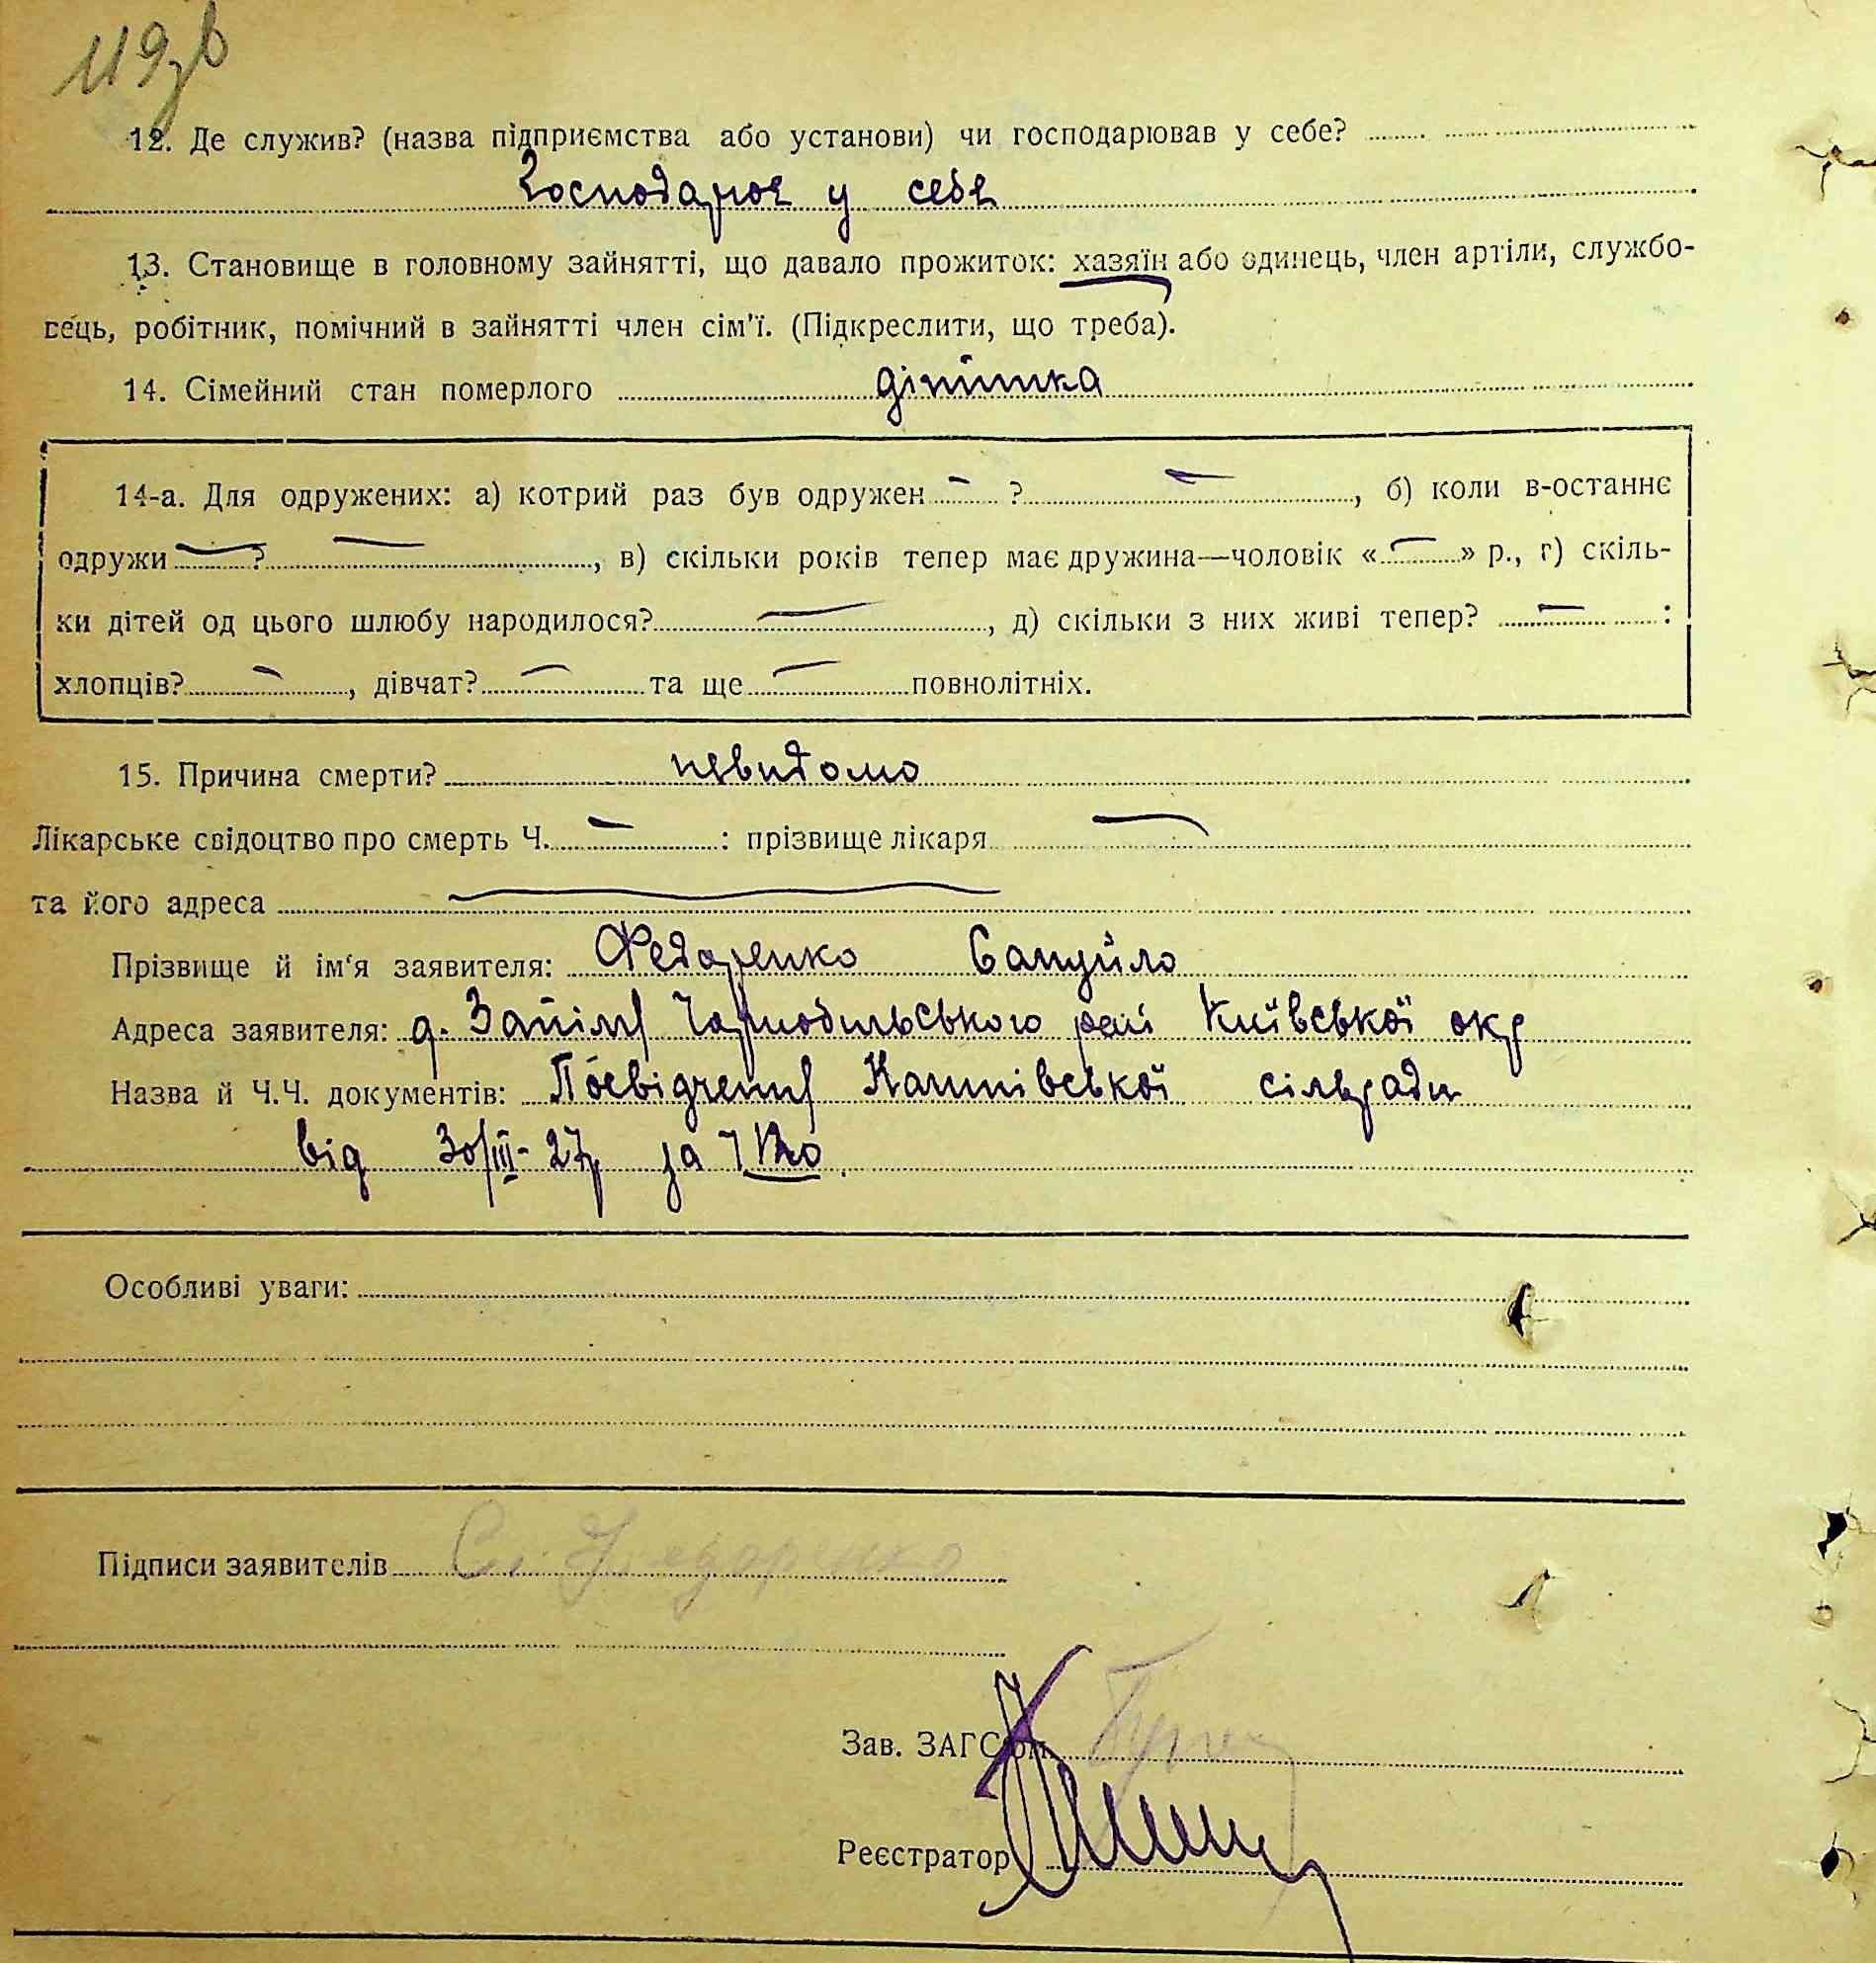 119зв
12. Де служив? (назва підприємства або установи) чи господарював у себе?
Господарює у себе
13. Становище в головному зайнятті, що давало прожиток: хазяїн або одинець, член артіли, службо-
вець, робітник, помічний в зайнятті член сім'ї. (Підкреслити, що треба).
14. Сімейний стан померлого
14-а. Для одружених: а) котрий раз був одружен — ? —, б) коли в-останнє
одружи — ? —, в) скільки років тепер має дружина—чоловік «—» р., г) скіль-
ки дітей од цього шлюбу народилося? —, д) скільки з них живі тепер? — :
хлопців? —, дівчат? — та ще — повнолітніх.
15. Причина смерти? невидомо
Лікарське свідоцтво про смерть Ч. — : прізвище лікаря —
та його адреса —
Прізвище й ім'я заявителя: Федоренко Самуйло
Адреса заявителя: Чорнобильського рай Київської окр
Назва й Ч.Ч. документів: Посвідчення сільради
від 30/III-27р за
Особливі уваги:
Підписи заявителів Федоренко
Зав. ЗАГС'ом
Реєстратор